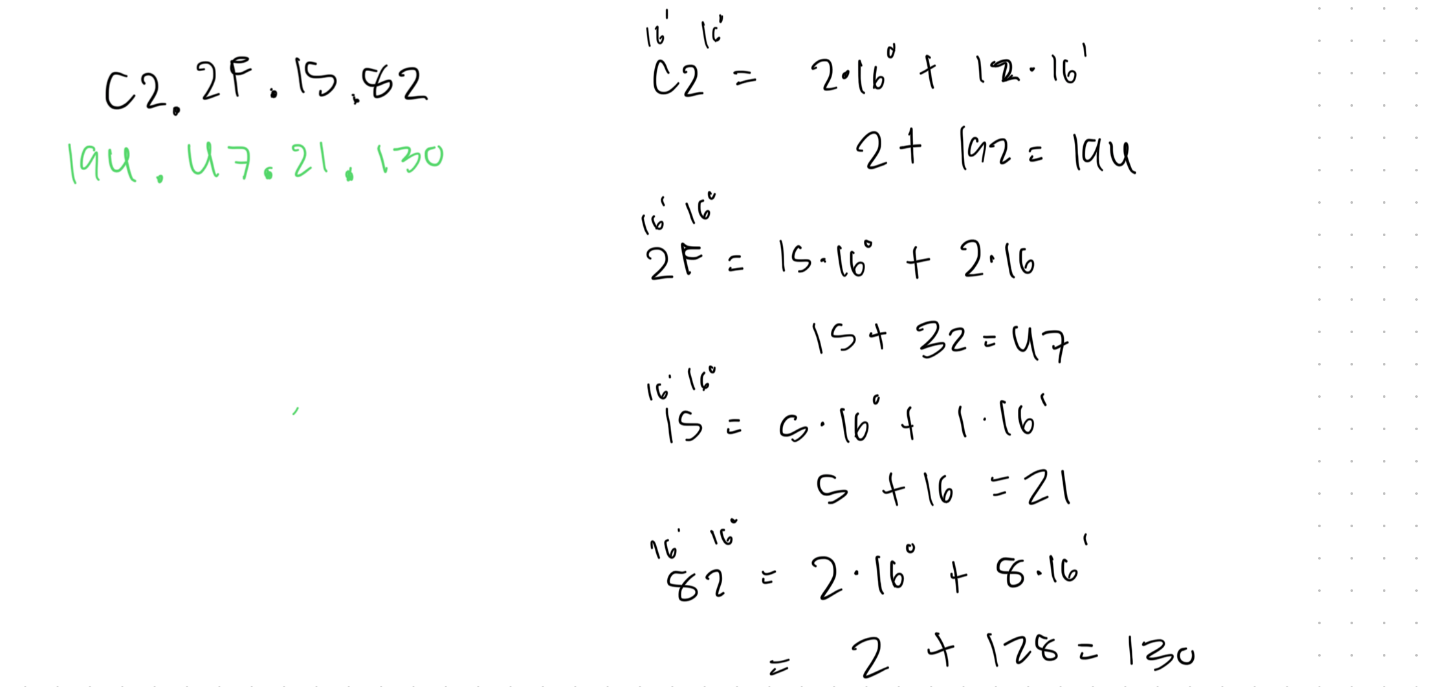 C2.2F.15.82
194.47.21.130
16¹ 16⁰
C2 = 2·16⁰ + 12·16¹
2 + 192 = 194
16¹ 16⁰
2F = 15·16⁰ + 2·16
15 + 32 = 47
16¹ 16⁰
15 = 5·16⁰ + 1·16¹
5 + 16 = 21
16¹ 16⁰
82 = 2·16⁰ + 8·16¹
= 2 + 128 = 130